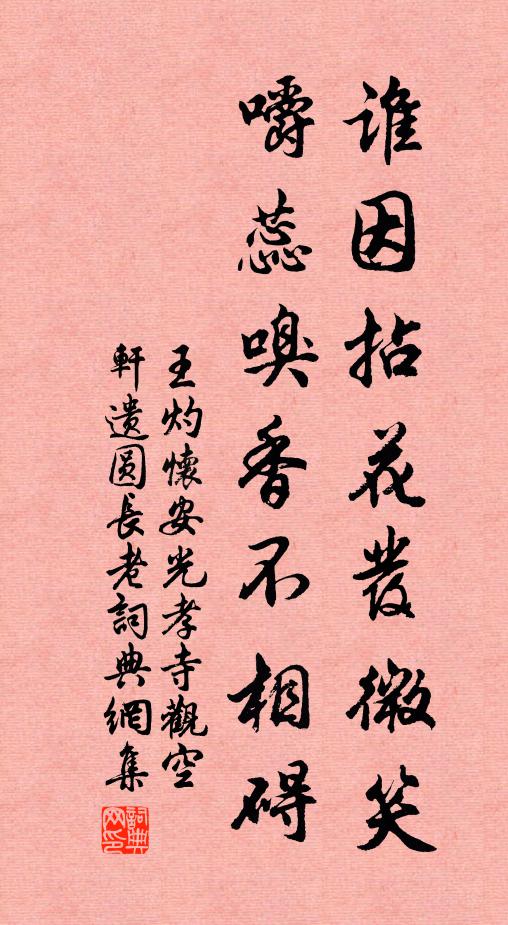 谁因拈花發微笑
嚼蕊嗅香不相碍
王灼懷安光孝寺觀空
軒遗圆長老詞典網集
詞典网印